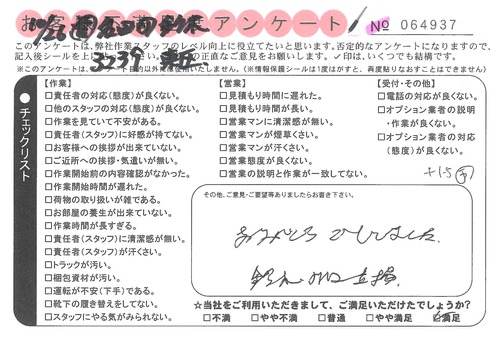 アンケート
№ 064937
このアンケートは、弊社作業スタッフのレベル向上に役立てたいと思います。否定的なアンケートになりますので、
記入後シールを上
の正直なご意見をお願いします。✓印は、いくつでも結構です。
※このアンケートは、
アンケート目的以外には使用いたしません。(※情報保護シールは1度はがすと、再度貼りなおすことはできません)
チェックリスト
【作業】
□責任者の対応(態度)が良くない。
□他のスタッフの対応(態度)が良くない。
□作業を見ていて不安がある。
□責任者(スタッフ)に好感が持てない。
□お客様への挨拶が出来ていない。
□ご近所への挨拶・気遣いが無い。
□作業開始前の内容確認がなかった。
□作業開始時間が遅れた。
□荷物の取り扱いが雑である。
□お部屋の養生が出来ていない。
□作業時間が長すぎる。
□責任者(スタッフ)に清潔感が無い。
□責任者(スタッフ)が汗くさい。
□トラックが汚い。
□梱包資材が汚い。
□運転が不安(下手)である。
□靴下の履き替えをしてない。
□スタッフにやる気がみられない。
【営業】
□見積もり時間に遅れた。
□見積もり時間が長い。
□営業マンに清潔感が無い。
□営業マンが煙草くさい。
□営業マンが汗くさい。
□営業態度が良くない。
□営業の説明と作業が一致してない。
【受付・その他】
□電話の対応が良くない。
□オプション業者の説明
・作業が良くない。
□オプション業者の対応
(態度)が良くない。
その他、ご意見・ご要望等ありましたらお書き下さい。
ありがとうございました。
☆当社をご利用いただきまして、ご満足いただけたでしょうか?
□不満 □やや不満 □普通 □やや満足 ☑満足